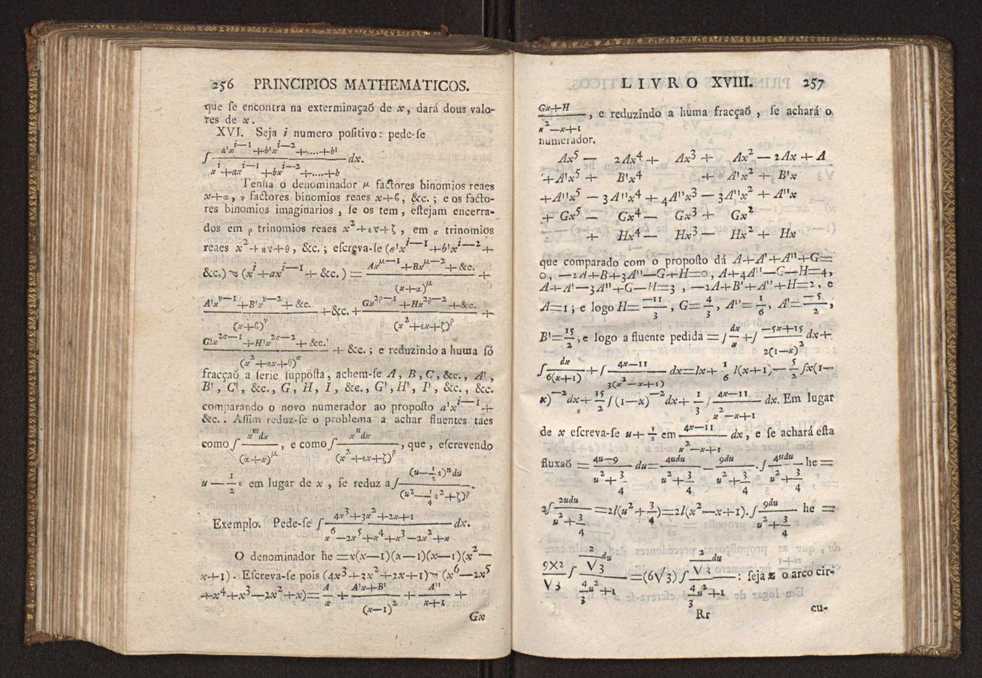 256 PRINCIPIOS MATHEMATICOS.
que ſe encontra na exterminaçaõ de x, dará dous valo-
res de x.
XVI. Seja i numero poſitivo: pede-ſe
∫ (a'x^{i—1}+b'x^{i—2}+....+b') / (x^i+ax^{i—1}+bx^{i—2}+....+b) dx.
Tenha o denominador μ factores binomios reaes
x+α, ν factores binomios reaes x+ϐ, &c.; e os facto-
res binomios imaginarios, ſe os tem, eſtejam encerra-
dos em ρ trinomios reaes x²+εx+ζ, em σ trinomios
reaes x²+ηx+θ, &c.; eſcreva-ſe (a'x^{i—1}+b'x^{i—2}+
&c.) ÷ (x^i+ax^{i—1}+ &c.) = (Ax^{μ—1}+Bx^{μ—2}+ &c.) / (x+α)^μ +
(A'x^{ν—1}+B'x^{ν—2}+ &c.) / (x+ϐ)^ν +&c.+ (Gx^{2ρ—1}+Hx^{2ρ—2}+&c.) / (x²+εx+ζ)^ρ +
(G'x^{2σ—1}+H'x^{2σ—2}+ &c.) / (x²+ηx+θ)^σ + &c.; e reduzindo a huma ſó
fracçaõ a ſerie ſuppoſta, achem-ſe A, B, C, &c., A',
B', C', &c., G, H, I, &c., G', H', I', &c., &c.
comparando o novo numerador ao propoſto a'x^{i—1}+
&c.. Aſſim reduz-ſe o problema a achar fluentes taes
como ∫ x^m dx / (x+α)^μ, e como ∫ x^n dx / (x²+εx+ζ)^ρ, que, eſcrevendo
u — 1/2 ε em lugar de x, ſe reduz a ∫ (u—1/2 ε)^n du / (u²—1/4 ε²+ζ)^ρ.
Exemplo. Pede-ſe ∫ (4x³+3x²+2x+1) / (x⁶—2x⁵+x⁴+x³—2x²+x) dx.
O denominador he =x(x—1)(x—1)(x—1)(x²—
x+1). Eſcreva-ſe pois (4x³+2x²+2x+1)÷(x⁶—2x⁵
+x⁴+x³—2x²+x)= A/x + (A'x+B')/(x—1)² + A''/(x+1) +
Gx
LIVRO XVIII. 257
(Gx+H)/(x²—x+1), e reduzindo a huma fracçaõ, ſe achará o
numerador.
Ax⁵— 2Ax⁴+ Ax³+ Ax²—2Ax+A
+A'x⁵+ B'x⁴ +A'x²+ B'x
+A''x⁵—3A''x⁴+4A''x³—3A''x²+A''x
+Gx⁵— Gx⁴— Gx³+ Gx²
+ Hx⁴— Hx³— Hx²+Hx
que comparado com o propoſto dá A+A'+A''+G=
0, —2A+B+3A''—G+H=0, A+4A''—G—H=4,
A+A'—3A''+G—H=3, —2A+B'+A''+H=2, e
A=1; e logo H= —11/3, G= 4/3, A''= 1/6, A'= —5/2,
B'= 15/2, e logo a fluente pedida = ∫ dx/x +∫ (—5x+15)/2(1—x)² dx+
∫ dx/6(x+1) +∫ (4x—11)/3(x²—x+1) dx=lx+ 1/6 l(x+1)— 5/2 ∫x(1—
x)^{—2}dx+ 15/2 ∫(1—x)^{—2}dx+ 1/3 ∫ (4x—11)/(x²—x+1) dx. Em lugar
de x eſcreva-ſe u+ 1/2 em (4x—11)/(x²—x+1) dx, e ſe achará eſta
fluxaõ = (4u—9)/(u²+3/4) du= 4udu/(u²+3/4) — 9du/(u²+3/4). ∫ 4udu/(u²+3/4) he =
2∫ 2udu/(u²+3/4) =2l(u²+3/4)=2l(x²—x+1). ∫ 9du/(u²+3/4) he =
9×2/√3 ∫ (2/√3 du)/(4/3 u²+1) =(6√3)∫ (2/√3 du)/(4/3 u²+1) : ſeja z o arco cir-
Rr cu-